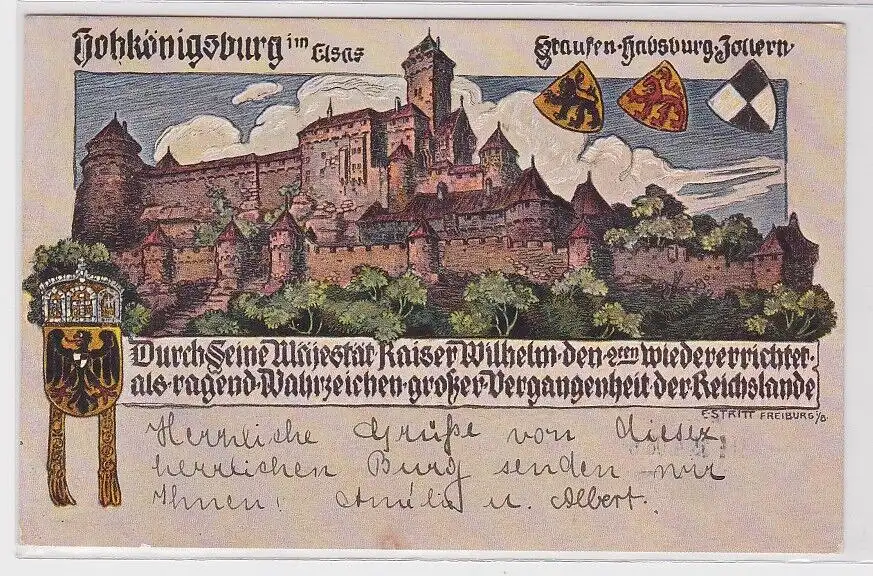 Hohkönigsburg im Elsas
Staufen·Habsburg·Zollern
Durch Seine Majestät Kaiser Wilhelm·den·2ten wiedererrichtet·
als·ragend·Wahrzeichen·großer·Vergangenheit der Reichslande
E·STRITT FREIBURG i/B
Herrliche Grüße von dieser
herrlichen Burg senden wir
Ihnen. Amélie u. Albert.